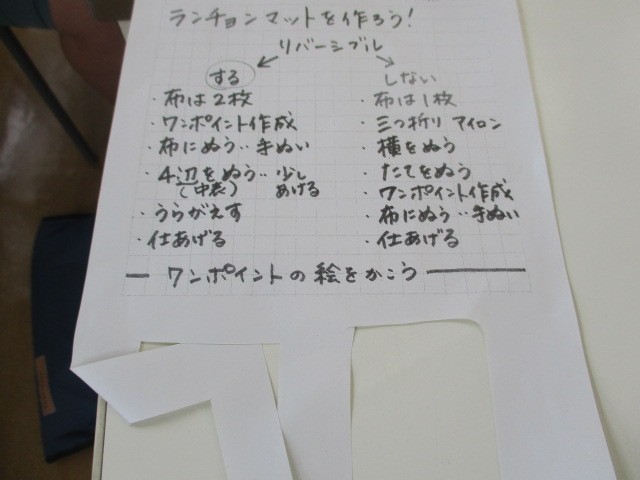 ランチョンマットを作ろう!
リバーシブル
する
・布は2枚
・ワンポイント作成
・布にぬう‥きぬい
・4辺をぬう‥少し
(中表) あける
・うらがえす
・仕あげる
しない
・布は1枚
・三つ折り アイロン
・横をぬう
・たてをぬう
・ワンポイント作成
・布にぬう‥きぬい
・仕あげる
ワンポイントの絵をかこう